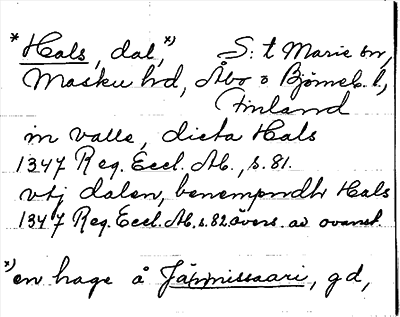 * Hals, dal, *) S:t Marie sn,
Masku hd, Åbo o Björneb. l,
Finland
in valle, dicta Hals
1347 Reg. Eccl. Ab., s. 81.
vtj dalen, benempndh Hals
1347 Reg. Eccl. Ab. s. 82 övers. av ovanst.
*) en hage å Jännissaari, gd,